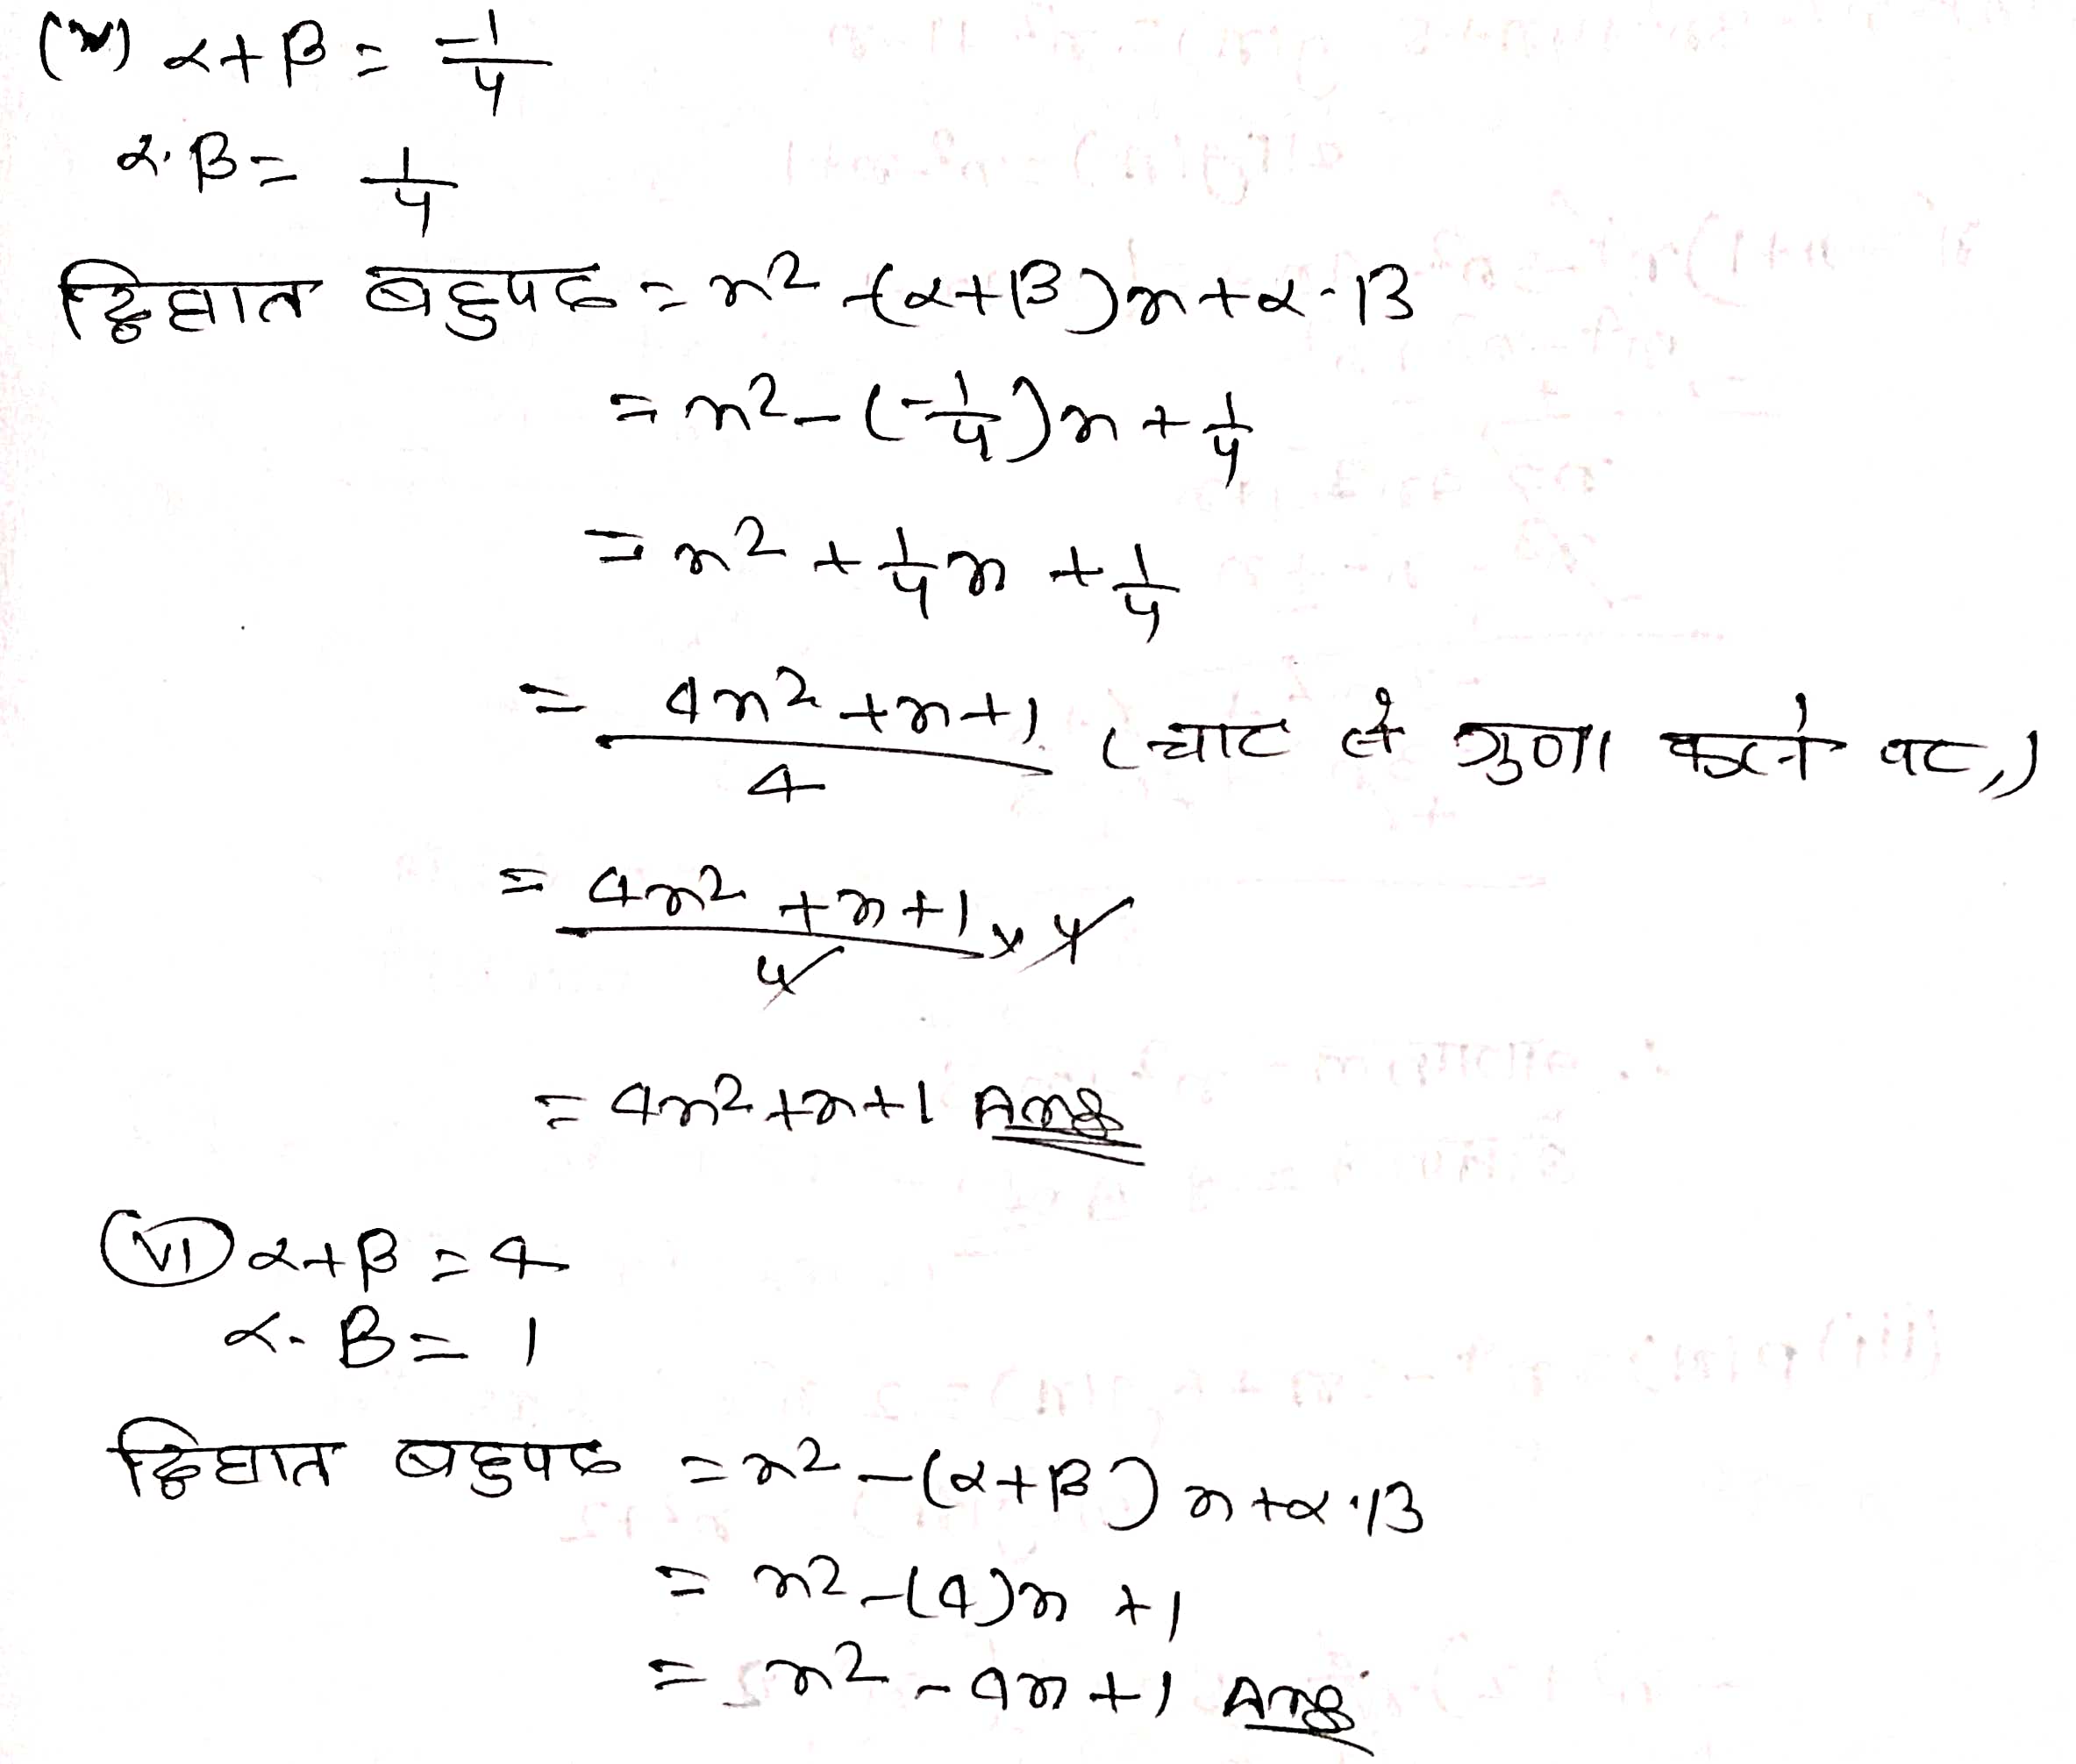 (v) α+β = -1/4
α.β = 1/4
द्विघात बहुपद = x² -(α+β)x+α.β
= x² - (-1/4)x + 1/4
= x² + 1/4 x + 1/4
= 4x²+x+1/4 (चार से गुणा करने पर,)
= 4x²+x+1/4 × 4
= 4x²+x+1 Ans
(VI) α+β = 4
α.β = 1
द्विघात बहुपद = x² -(α+β)x+α.β
= x² -(4)x +1
= x² - 4x +1 Ans